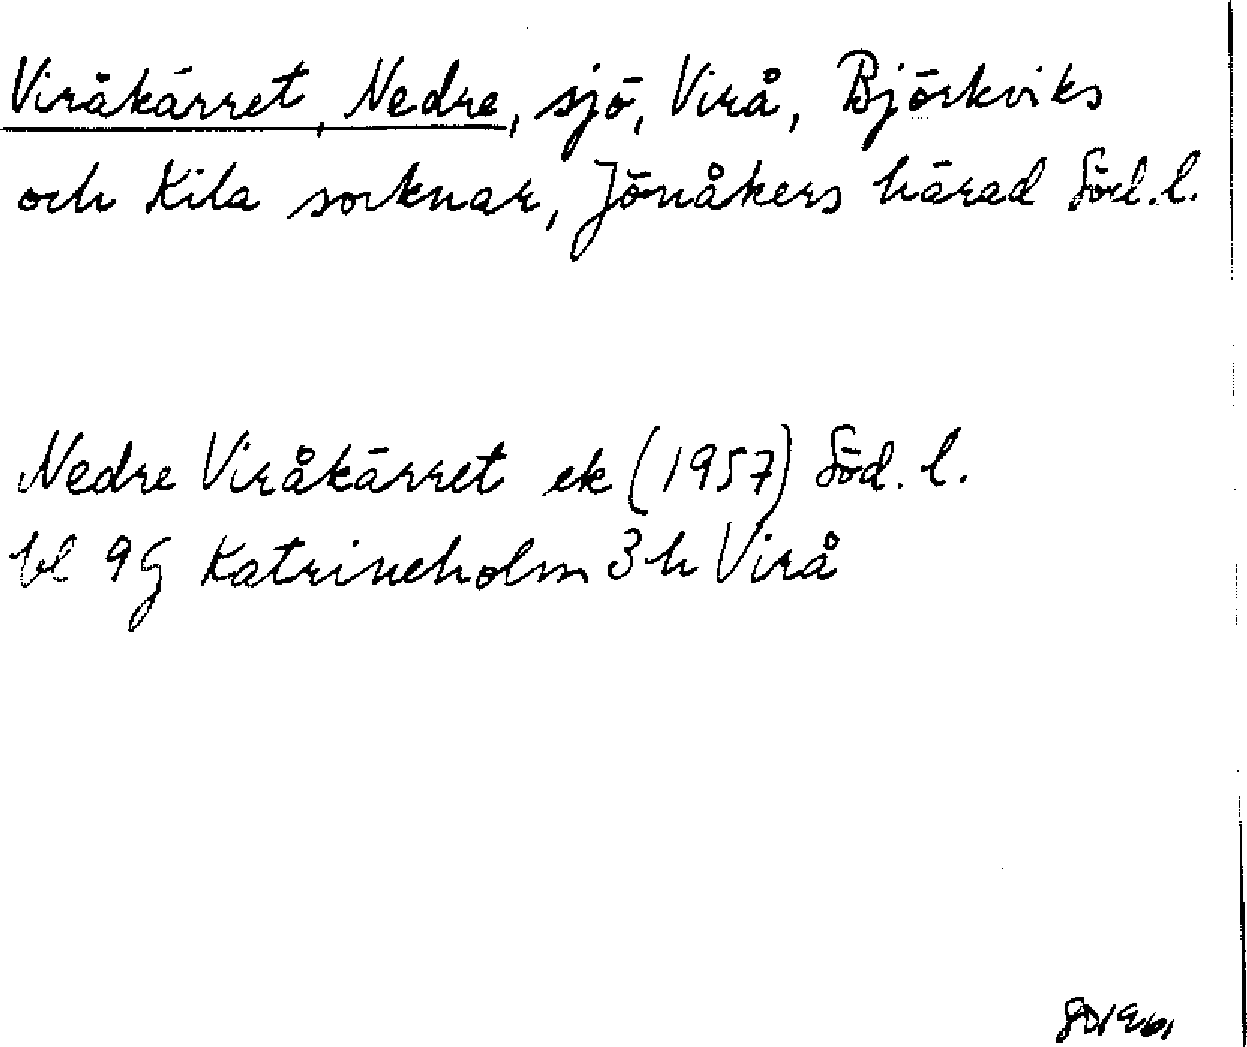 Viråkärret, Nedre, sjö, Virå, Björkviks
och Kila socknar, Jönåkers härad Söd. l.
Nedre Viråkärret ek (1957) Söd. l.
bl 9G Katrineholm 3h Virå